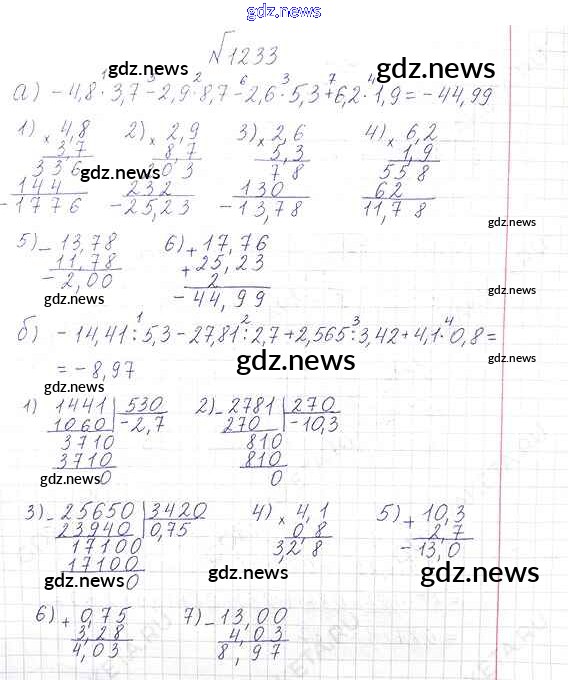 gdz.news
№1233
а) -4,8 · 3,7 - 2,9 · 8,7 - 2,6 · 5,3 + 6,2 · 1,9 = -44,99
1 3 2 6 3 7 4
gdz.news gdz.news
1) × 4,8 2) × 2,9 3) × 2,6 4) × 6,2
3,7 8,7 5,3 1,9
336 203 78 558
144 232 130 62
-17 76 -25,23 -13,78 11,78
gdz.news gdz.news
5) - 13,78 6) + 17,76
11,78 + 25,23
-2,00 2
-44,99
gdz.news gdz.news
б) -14,41 : 5,3 - 27,81 : 2,7 + 2,565 : 3,42 + 4,1 · 0,8 =
1 2 3 4
= -8,97
gdz.news
1) 1441 | 530 2) - 2781 | 270
1060 | -2,7 270 | -10,3
3710 810
3710 810
0 0
gdz.news
3) - 25650 | 3420 4) × 4,1 5) + 10,3
23940 | 0,75 0,8 2,7
17100 3,28 -13,0
17100
0
gdz.news gdz.news gdz.news
6) + 0,75 7) - 13,00
3,28 4,03
4,03 8,97